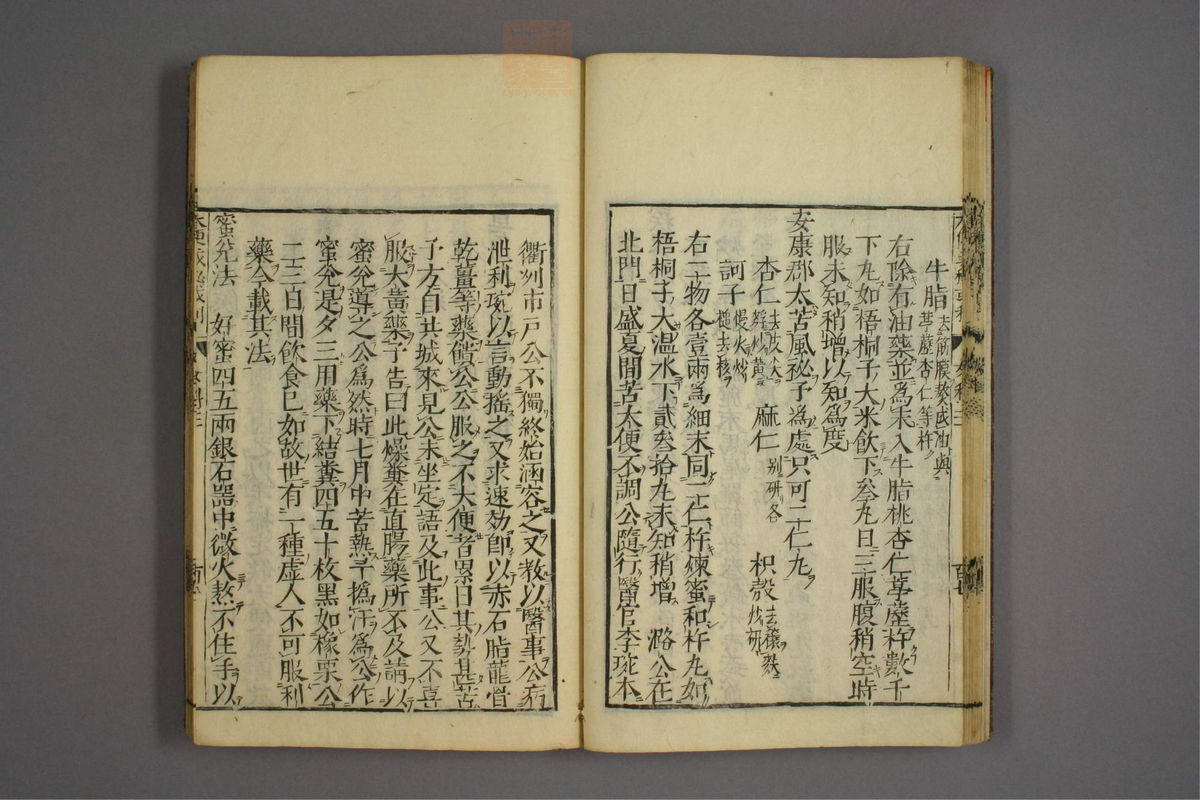 牛脂去筋膜熬成油與葶藶杏仁等杵
右除有油藥並爲末入牛脂桃杏仁葶藶杵數千
下丸如梧桐子大米飲下叄丸日三服腹稍空時
服未知稍增以知爲度
安康郡太苦風祕予爲處只可二仁丸
杏仁去皮尖麩炒黃 麻仁別研各 枳殼去穰麩炒研
訶子慢火炒槌去核
右二物各壹兩爲細末同二仁杵煉蜜和杵丸如
梧桐子大溫水下貳叄拾丸未知稍增 潞公在
北門日盛夏間苦大便不調公隨行醫官李琬本
衢州市戸公不獨終始涵容之又教以醫事公病
泄利琬以言動搖之又求速効卽以赤石脂龍骨
乾薑等藥饋公公服之不大便者累日其勢甚苦
予方自共城來見公未坐定語及此事公又不喜
服大黃藥予告曰此燥糞在直腸藥所不及請以
蜜兊導之公爲然時七月中苦熱予撝汗爲公作
蜜兊是夕三用藥下結糞四五十枚黑如橡栗公
二三日間飲食已如故世有一種虛人不可服利
藥今載其法
蜜兊法 好蜜四五兩銀石器中微火熬不住手以